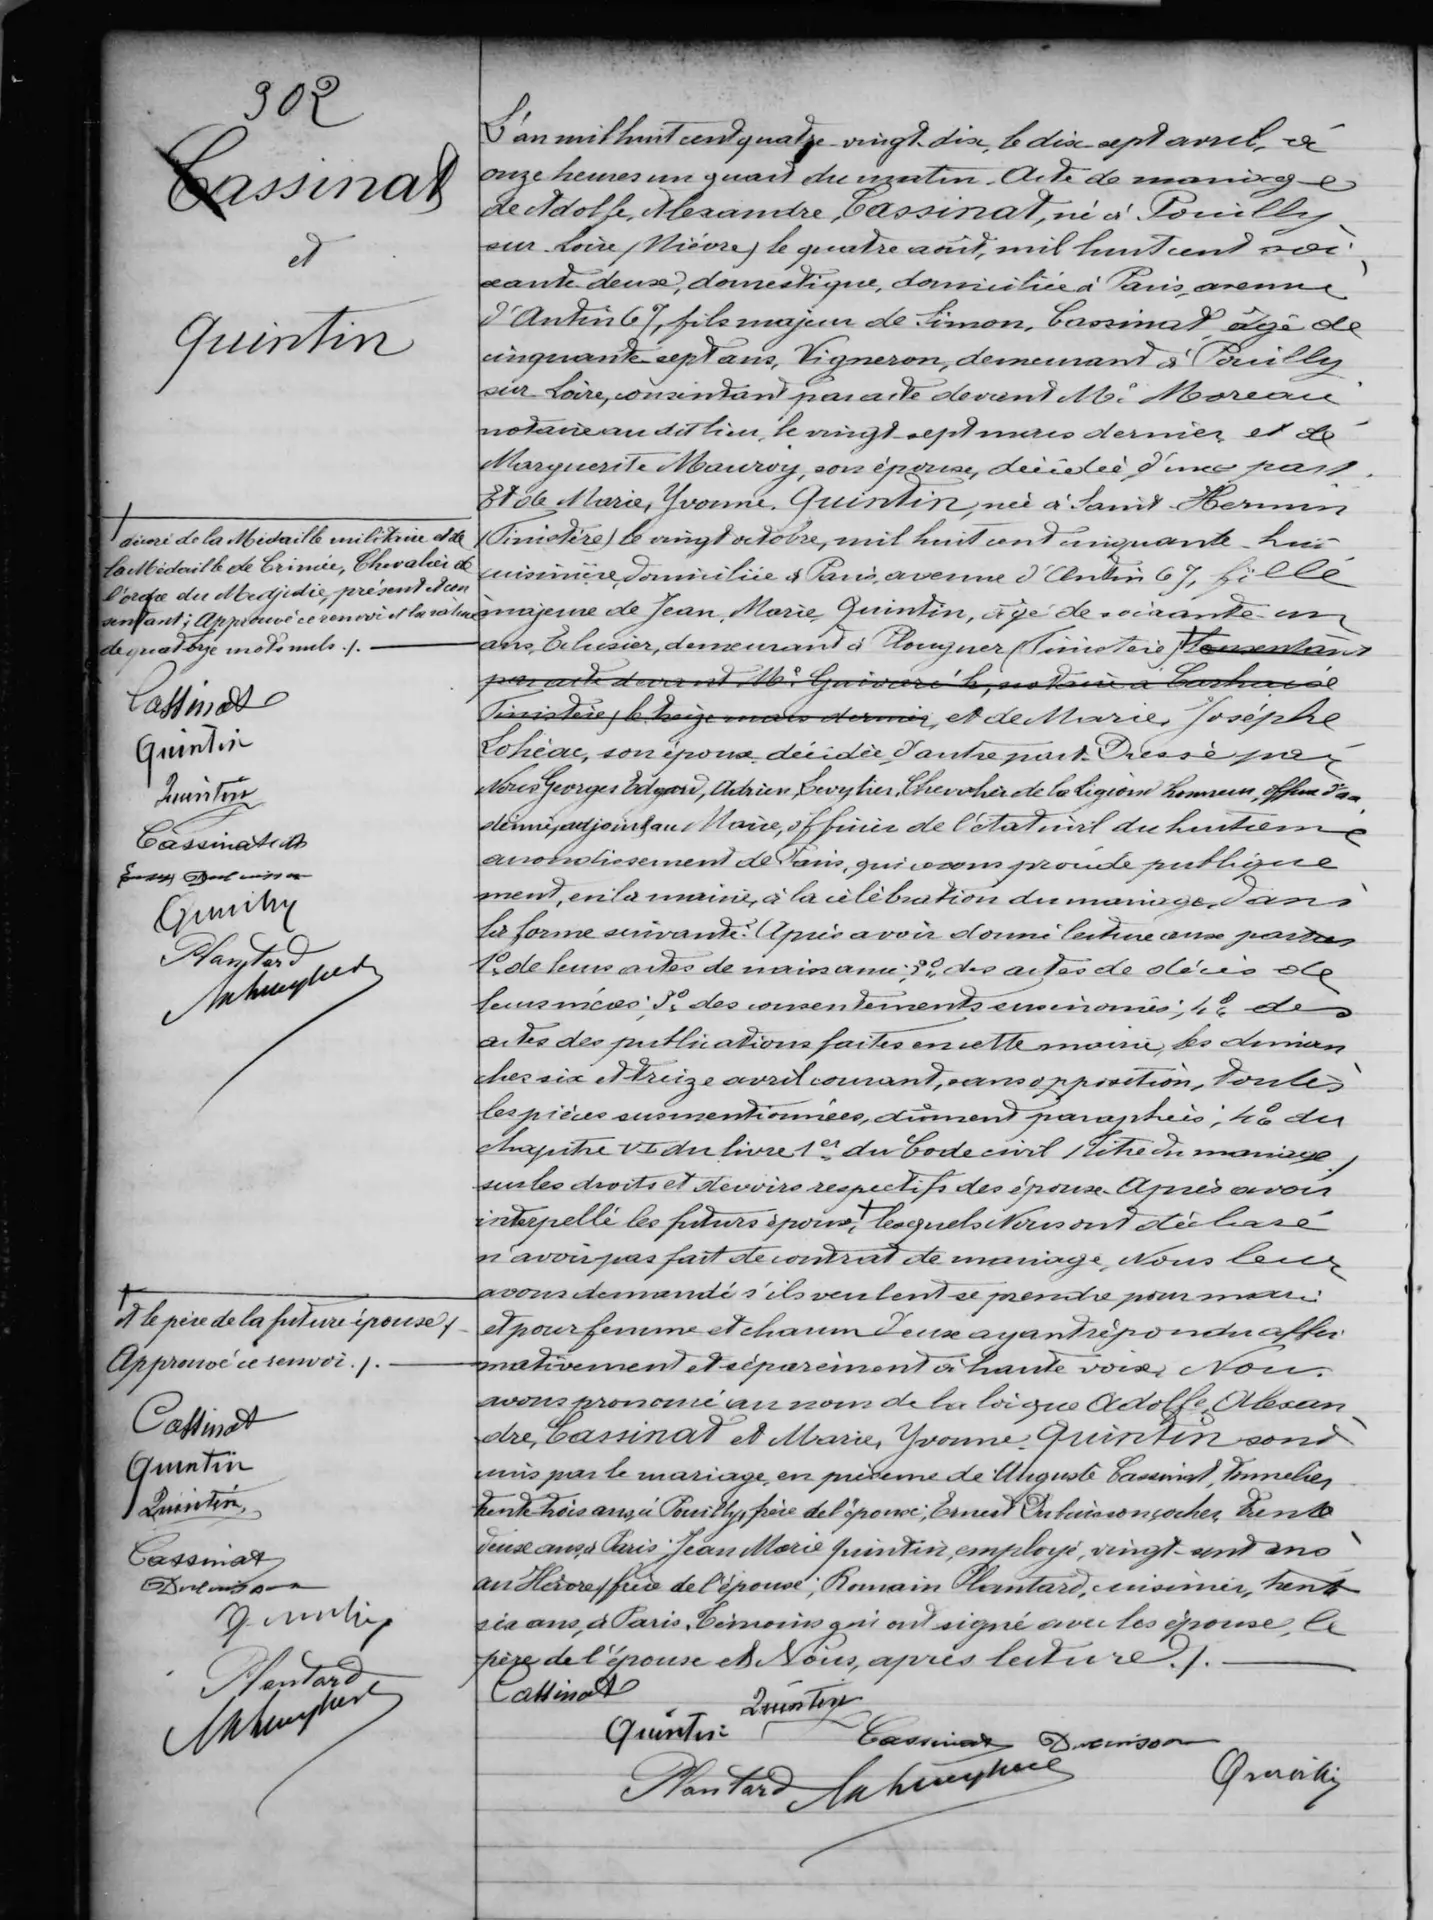 302
Cassinat
et
Quintin
L'an mil huit cent quatre-vingt-dix, le dix-sept avril, à
onze heures un quart du matin. Acte de mariage
de Adolfe, Alexandre, Cassinat, né à Pouilly
sur Loire (Nièvre) le quatre août, mil huit cent soi
xante deux, domestique, domicilié à Paris, avenue
d'Antin 67, fils majeur de Simon, Cassinat âgé de
cinquante-sept ans, Vigneron, demeurant à Pouilly
sur Loire, consentant par acte devant Me Moreau
notaire au dit lieu, le vingt-sept mars dernier, et de
Marguerite Mauroy, son épouse, décédée, d'une part.
Et de Marie, Yvonne, Quintin, née à Saint-Hernin
(Finistère) le vingt octobre, mil huit cent cinquante-huit
cuisinière, domiciliée à Paris, avenue d'Antin 67, fille
majeure de Jean, Marie, Quintin, âgé de soixante-un
ans, Eclusier, demeurant à Plouguer (Finistère) † consentant
par acte devant Me Guivarc'h, notaire à Carhaix
Finistère, le treize mars dernier, et de Marie, Josèphe
Lohéac, son épouse, décédée, d'autre part. Dressé par
Nous Georges Edgard, Adrien, Chevalier de la Légion honneur, officier d'aca
démie, adjoint au Maire, officier de l'état civil du huitième
arrondissement de Paris, qui avons procédé publique
ment, en la mairie, à la célébration du mariage, dans
la forme suivante: Après avoir donné lecture aux parties
1o de leurs actes de naissance; 2o des actes de décès de
leurs mères; 3o des consentements susénoncés; 4o des
actes des publications faites en cette mairie, les diman
ches six et treize avril courant, sans opposition, toutes
les pièces susmentionnées, dûment paraphées; 4o du
chapitre VI du livre 1er du Code civil (titre du mariage)
sur les droits et devoirs respectifs des époux. Après avoir
interpellé les futurs époux, † lesquels Nous ont déclaré
n'avoir pas fait de contrat de mariage, Nous leur
avons demandé s'ils veulent se prendre pour mari
et pour femme et chacun d'eux ayant répondu affir
mativement et séparément à haute voix, Nous
avons prononcé au nom de la loi que Adolfe, Alexan
dre, Cassinat et Marie, Yvonne, Quintin sont
unis par le mariage, en présence de Auguste Cassinat, tonnelier
trente-trois ans, à Pouilly, frère de l'époux; Ernest Dubuisson, cocher, trente
deux ans, à Paris; Jean Marie Quintin, employé, vingt-sept ans
au Hâvre, frère de l'épouse; Romain Plantard, cuisinier, trente
six ans, à Paris. Témoins qui ont signé avec les époux, le
père de l'épouse et Nous, après lecture./.
Cassinat
Quintin Quintin
Cassinat Dubuisson
Plantard
† décoré de la Médaille militaire et de
la Médaille de Crimée, Chevalier de
l'ordre du Medjidié, présent et con
sentant; Approuvé ce renvoi et la rature
de quatorze mots nuls./.
Cassinat
Quintin
Quintin
Cassinat
Plantard
† et le père de la future épouse,
Approuvé ce renvoi./.
Cassinat
Quintin
Quintin
Cassinat
Dubuisson
Plantard